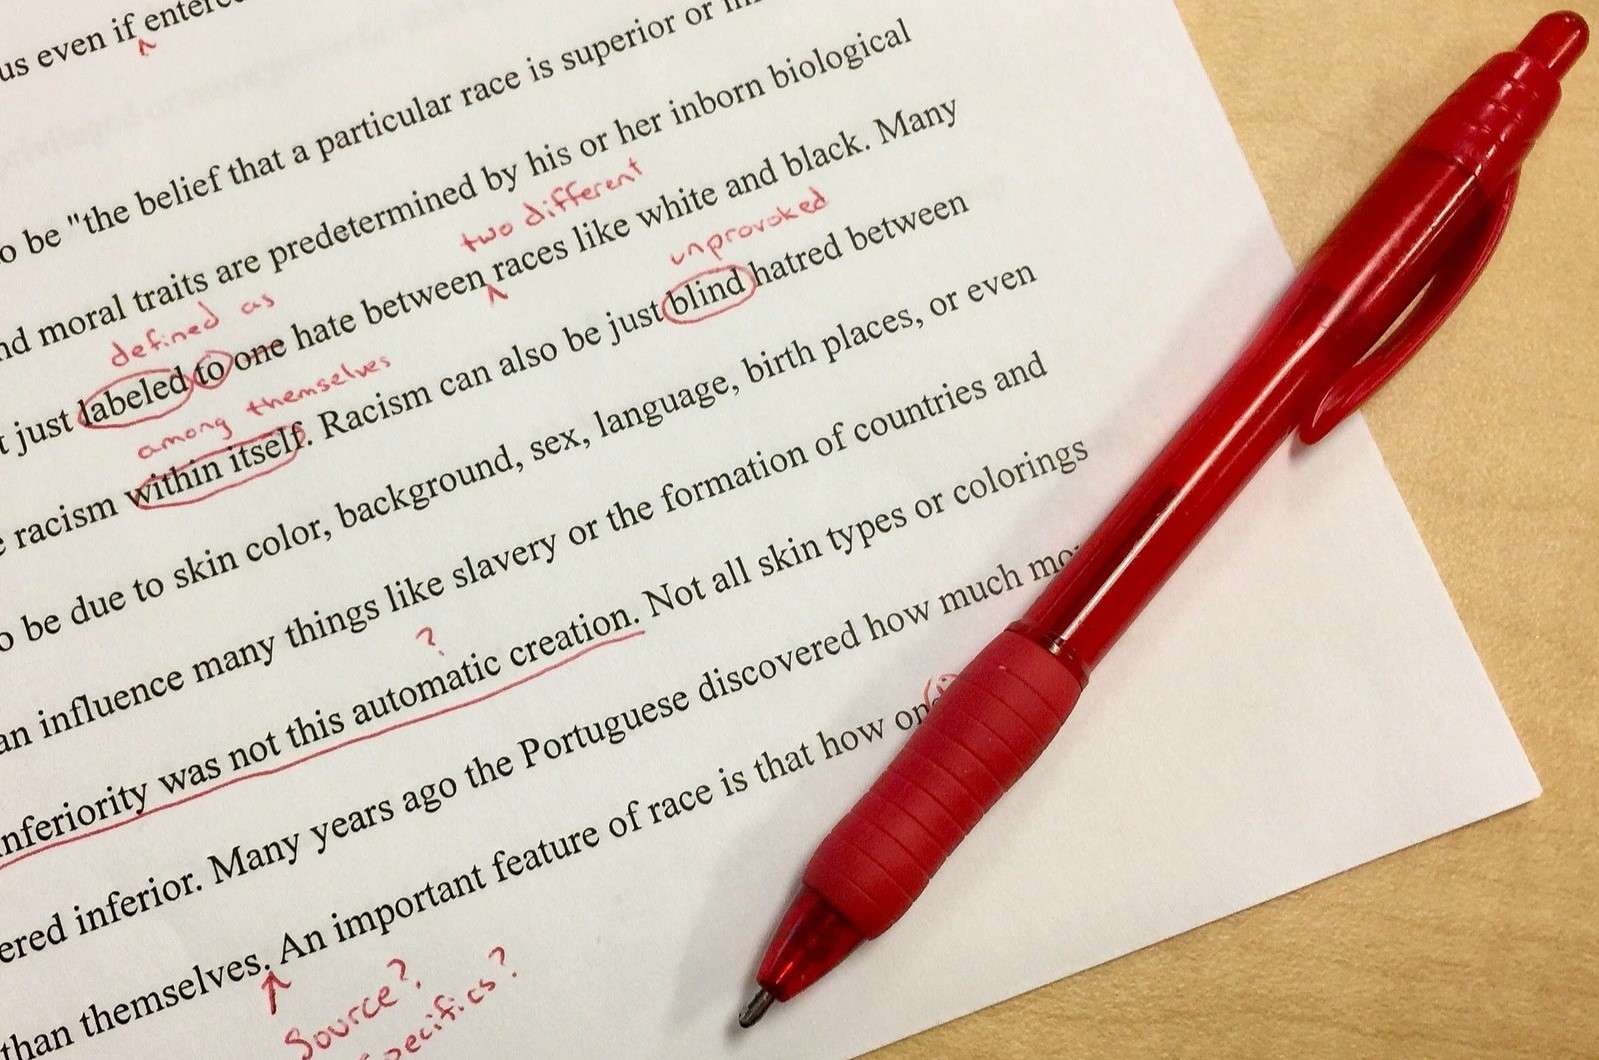 us even if entere
o be "the belief that a particular race is superior or
nd moral traits are predetermined by his or her inborn biological
two different
defined as
t just labeled to one hate between races like white and black. Many
unprovoked
among themselves
racism within itself. Racism can also be just blind hatred between
o be due to skin color, background, sex, language, birth places, or even
an influence many things like slavery or the formation of countries and
?
nferiority was not this automatic creation. Not all skin types or colorings
ered inferior. Many years ago the Portuguese discovered how much mo
than themselves. An important feature of race is that how on
Source?
specifics?